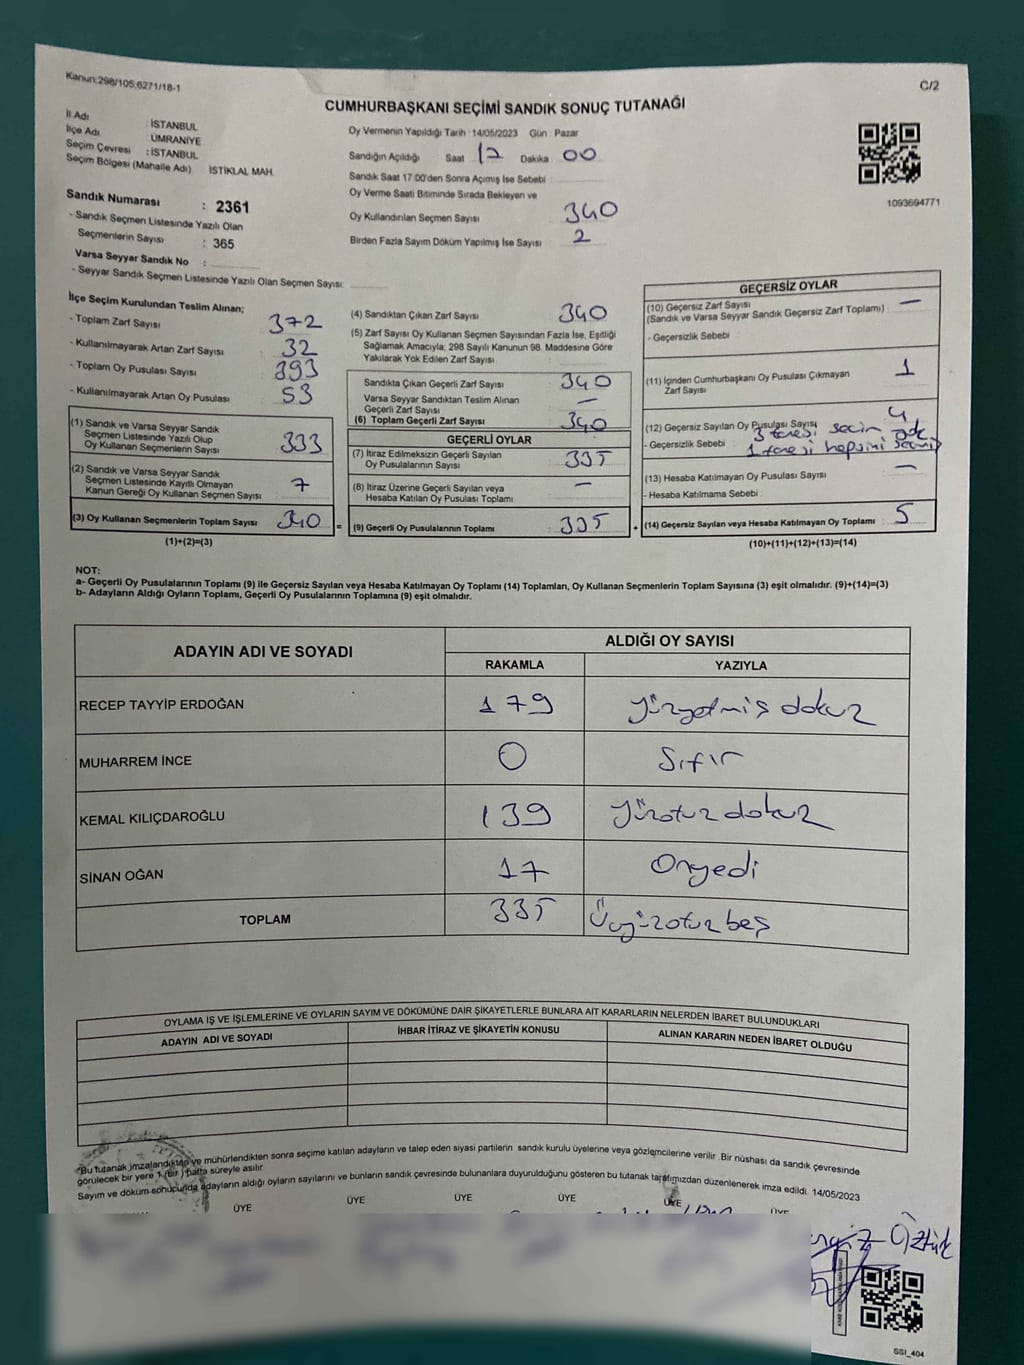 Kanun:298/105;6271/18-1
C/2
CUMHURBAŞKANI SEÇİMİ SANDIK SONUÇ TUTANAĞI
İl Adı : İSTANBUL
İlçe Adı : ÜMRANİYE
Seçim Çevresi : İSTANBUL
Seçim Bölgesi (Mahalle Adı) İSTİKLAL MAH.
Sandık Numarası : 2361
- Sandık Seçmen Listesinde Yazılı Olan
Seçmenlerin Sayısı : 365
Varsa Seyyar Sandık No :
- Seyyar Sandık Seçmen Listesinde Yazılı Olan Seçmen Sayısı:
Oy Vermenin Yapıldığı Tarih : 14/05/2023 Gün : Pazar
Sandığın Açıldığı Saat 17 Dakika 00
Sandık Saat 17:00'den Sonra Açımış İse Sebebi :
Oy Verme Saati Bitiminde Sırada Bekleyen ve
Oy Kullandırılan Seçmen Sayısı 340
Birden Fazla Sayım Döküm Yapılmış İse Sayısı 2
1093694771
İlçe Seçim Kurulundan Teslim Alınan;
- Toplam Zarf Sayısı 372
- Kullanılmayarak Artan Zarf Sayısı 32
- Toplam Oy Pusulası Sayısı 393
- Kullanılmayarak Artan Oy Pusulası 53
(1) Sandık ve Varsa Seyyar Sandık
Seçmen Listesinde Yazılı Olup
Oy Kullanan Seçmenlerin Sayısı 333
(2) Sandık ve Varsa Seyyar Sandık
Seçmen Listesinde Kayıtlı Olmayan
Kanun Gereği Oy Kullanan Seçmen Sayısı 7
(3) Oy Kullanan Seçmenlerin Toplam Sayısı 340 =
(1)+(2)=(3)
(4) Sandıktan Çıkan Zarf Sayısı 340
(5) Zarf Sayısı Oy Kullanan Seçmen Sayısından Fazla İse, Eşitliği
Sağlamak Amacıyla; 298 Sayılı Kanunun 98. Maddesine Göre
Yakılarak Yok Edilen Zarf Sayısı
Sandıkta Çıkan Geçerli Zarf Sayısı 340
Varsa Seyyar Sandıktan Teslim Alınan
Geçerli Zarf Sayısı —
(6) Toplam Geçerli Zarf Sayısı 340
GEÇERLİ OYLAR
(7) İtiraz Edilmeksizin Geçerli Sayılan
Oy Pusulalarının Sayısı 335
(8) İtiraz Üzerine Geçerli Sayılan veya
Hesaba Katılan Oy Pusulası Toplamı —
(9) Geçerli Oy Pusulalarının Toplamı 335 +
GEÇERSİZ OYLAR
(10) Geçersiz Zarf Sayısı
(Sandık ve Varsa Seyyar Sandık Geçersiz Zarf Toplamı) : —
- Geçersizlik Sebebi :
(11) İçinden Cumhurbaşkanı Oy Pusulası Çıkmayan
Zarf Sayısı 1
(12) Geçersiz Sayılan Oy Pusulası Sayısı 4
3 tanesi seçim
- Geçersizlik Sebebi : 1 tanesi hepsini
(13) Hesaba Katılmayan Oy Pusulası Sayısı —
- Hesaba Katılmama Sebebi :
(14) Geçersiz Sayılan veya Hesaba Katılmayan Oy Toplamı : 5
(10)+(11)+(12)+(13)=(14)
NOT:
a- Geçerli Oy Pusulalarının Toplamı (9) ile Geçersiz Sayılan veya Hesaba Katılmayan Oy Toplamı (14) Toplamları, Oy Kullanan Seçmenlerin Toplam Sayısına (3) eşit olmalıdır. (9)+(14)=(3)
b- Adayların Aldığı Oyların Toplamı, Geçerli Oy Pusulalarının Toplamına (9) eşit olmalıdır.
ADAYIN ADI VE SOYADI
ALDIĞI OY SAYISI
RAKAMLA YAZIYLA
RECEP TAYYİP ERDOĞAN 179 yüzyetmiş dokuz
MUHARREM İNCE 0 Sıfır
KEMAL KILIÇDAROĞLU 139 yüzotuz dokuz
SİNAN OĞAN 17 Onyedi
TOPLAM 335 Üçyüzotuz beş
OYLAMA İŞ VE İŞLEMLERİNE VE OYLARIN SAYIM VE DÖKÜMÜNE DAİR ŞİKAYETLERLE BUNLARA AİT KARARLARIN NELERDEN İBARET BULUNDUKLARI
ADAYIN ADI VE SOYADI İHBAR İTİRAZ VE ŞİKAYETİN KONUSU ALINAN KARARIN NEDEN İBARET OLDUĞU
*Bu tutanak imzalandıktan ve mühürlendikten sonra seçime katılan adayların ve talep eden siyasi partilerin sandık kurulu üyelerine veya gözlemcilerine verilir .Bir nüshası da sandık çevresinde
görülecek bir yere 1 (bir ) hafta süreyle asılır.
Sayım ve döküm sonucunda adayların aldığı oyların sayılarını ve bunların sandık çevresinde bulunanlara duyurulduğunu gösteren bu tutanak tarafımızdan düzenlenerek imza edildi. 14/05/2023
ÜYE ÜYE ÜYE ÜYE ÜYE ÜYE
Öztürk
SSI_404